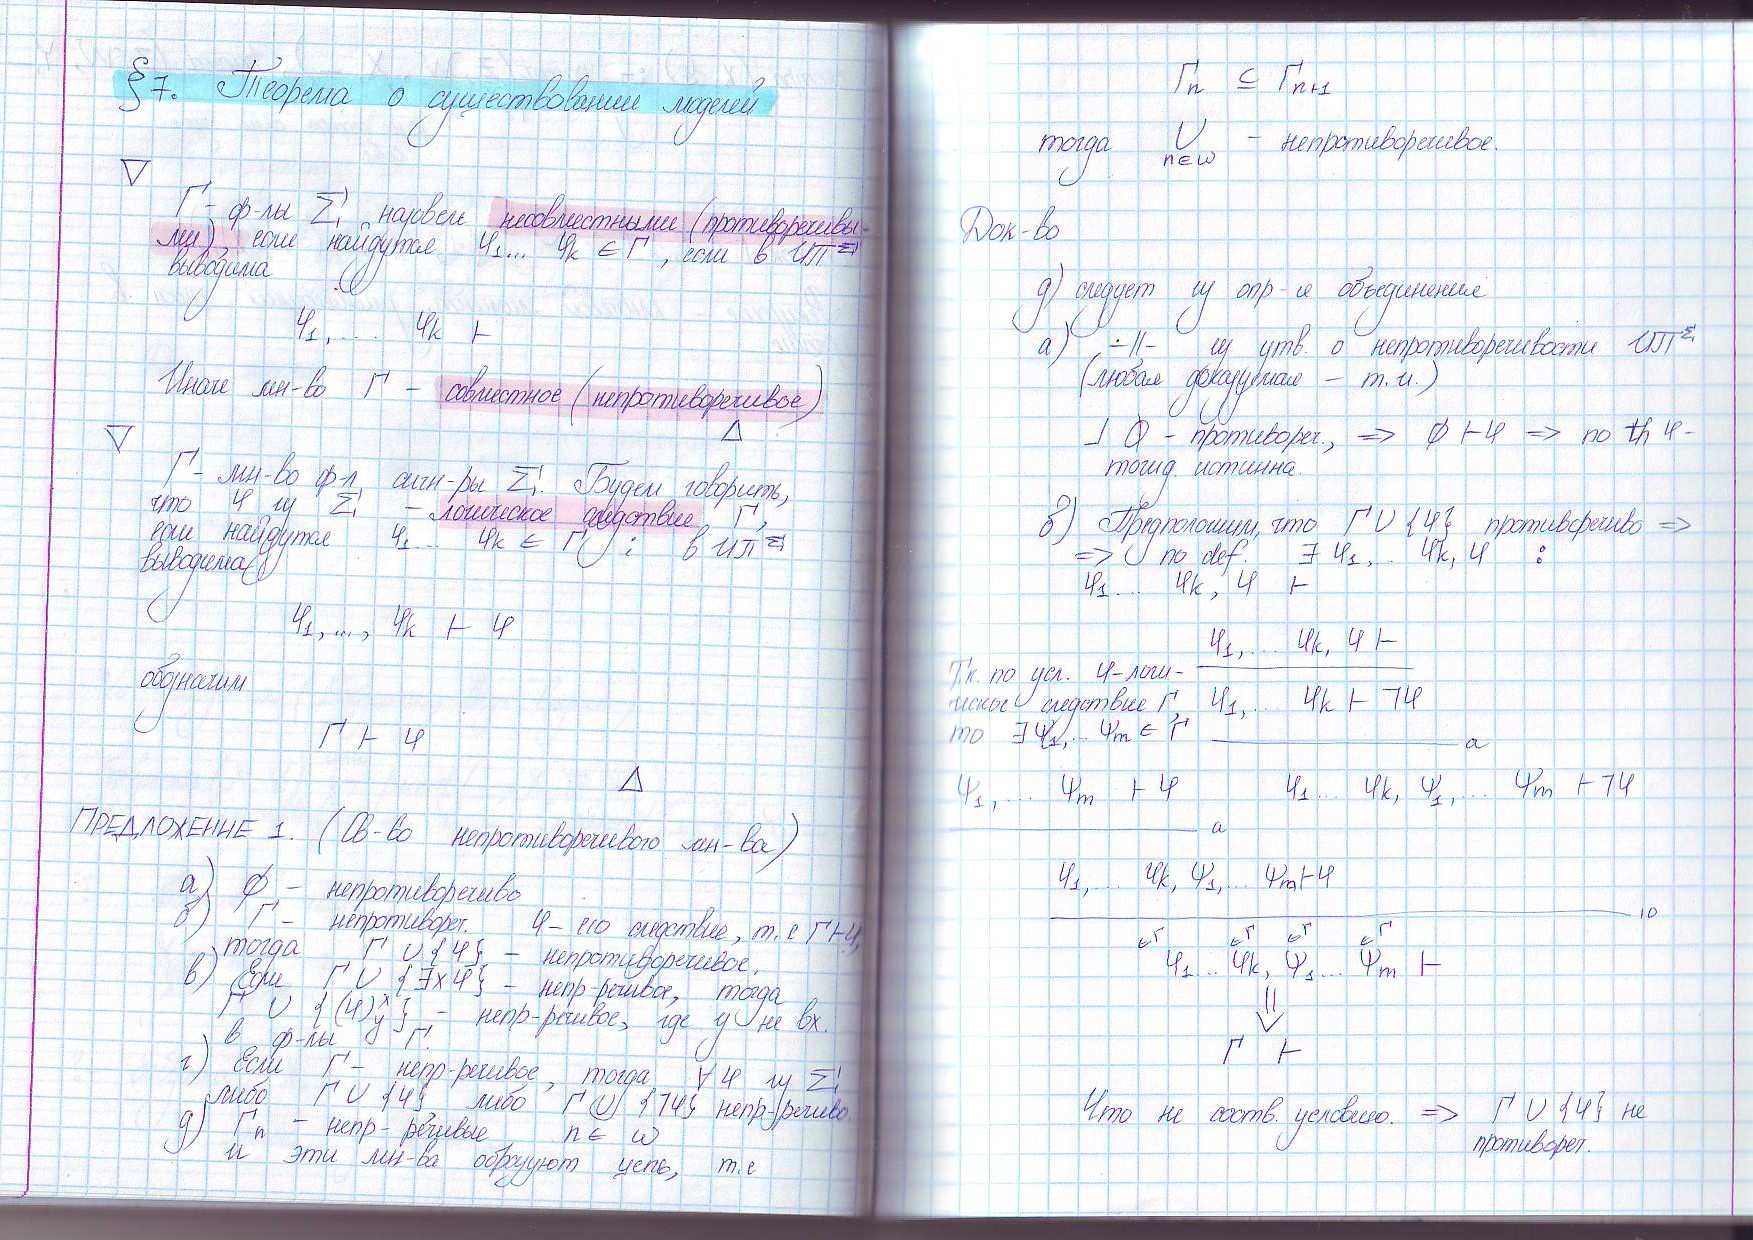 §7. Теорема о существовании моделей
▽
Γ - ф-лы Σ, назовем несовместными (противоречивы-
ми), если найдутся φ₁... φk ∈ Γ, если в ИП^Σ
выводима
φ₁, ... φk ⊢
Иначе мн-во Γ - совместное (непротиворечивое)
△
▽
Γ - мн-во ф-л сигн-ры Σ. Будем говорить,
что φ из Σ - логическое следствие Γ,
если найдутся φ₁... φk ∈ Γ : в ИП^Σ
выводима
φ₁, ..., φk ⊢ φ
обозначим
Γ ⊢ φ
△
ПРЕДЛОЖЕНИЕ 1. (Св-во непротиворечивого мн-ва)
а) ∅ - непротиворечиво
б) Γ - непротивореч. φ - его следствие, т.е Γ⊢φ,
тогда Γ ∪ {φ} - непротиворечивое.
в) Если Γ ∪ {∃xφ} - непр-речивое, тогда
Γ ∪ {(φ)^x_y} - непр-речивое, где y не вх.
в ф-лы Γ.
г) Если Γ - непр-речивое, тогда ∀φ из Σ
либо Γ ∪ {φ} либо Γ ∪ {¬φ} непр-речиво.
д) Γn - непр-речивые n ∈ ω
и эти мн-ва образуют цепь, т.е
Γn ⊆ Γn+1
тогда ∪ n∈ω - непротиворечивое.
Док-во
д) следует из опр-я объединения
а) -//- из утв. о непротиворечивости ИП^Σ
(любая доказуемая - т.и.)
⅃ ∅ - противореч., => ∅ ⊢ φ => по th φ -
тожд истинна.
б) Предположим, что Γ ∪ {φ} противоречиво =>
=> по def. ∃ φ₁, ... φk, φ :
φ₁... φk, φ ⊢
φ₁, ... φk, φ ⊢
Т.к. по усл. φ - логи-
ческое следствие Γ, φ₁, ... φk ⊢ ¬φ
то ∃ψ₁, ... ψm ∈ Γ а
ψ₁, ... ψm ⊢ φ φ₁... φk, ψ₁, ... ψm ⊢ ¬φ
а
φ₁, ... φk, ψ₁, ... ψm ⊢ φ
10
∈Γ ∈Γ ∈Γ ∈Γ
φ₁... φk, ψ₁... ψm ⊢
⇓
Γ ⊢
Что не соотв. условию. => Γ ∪ {φ} не
противореч.